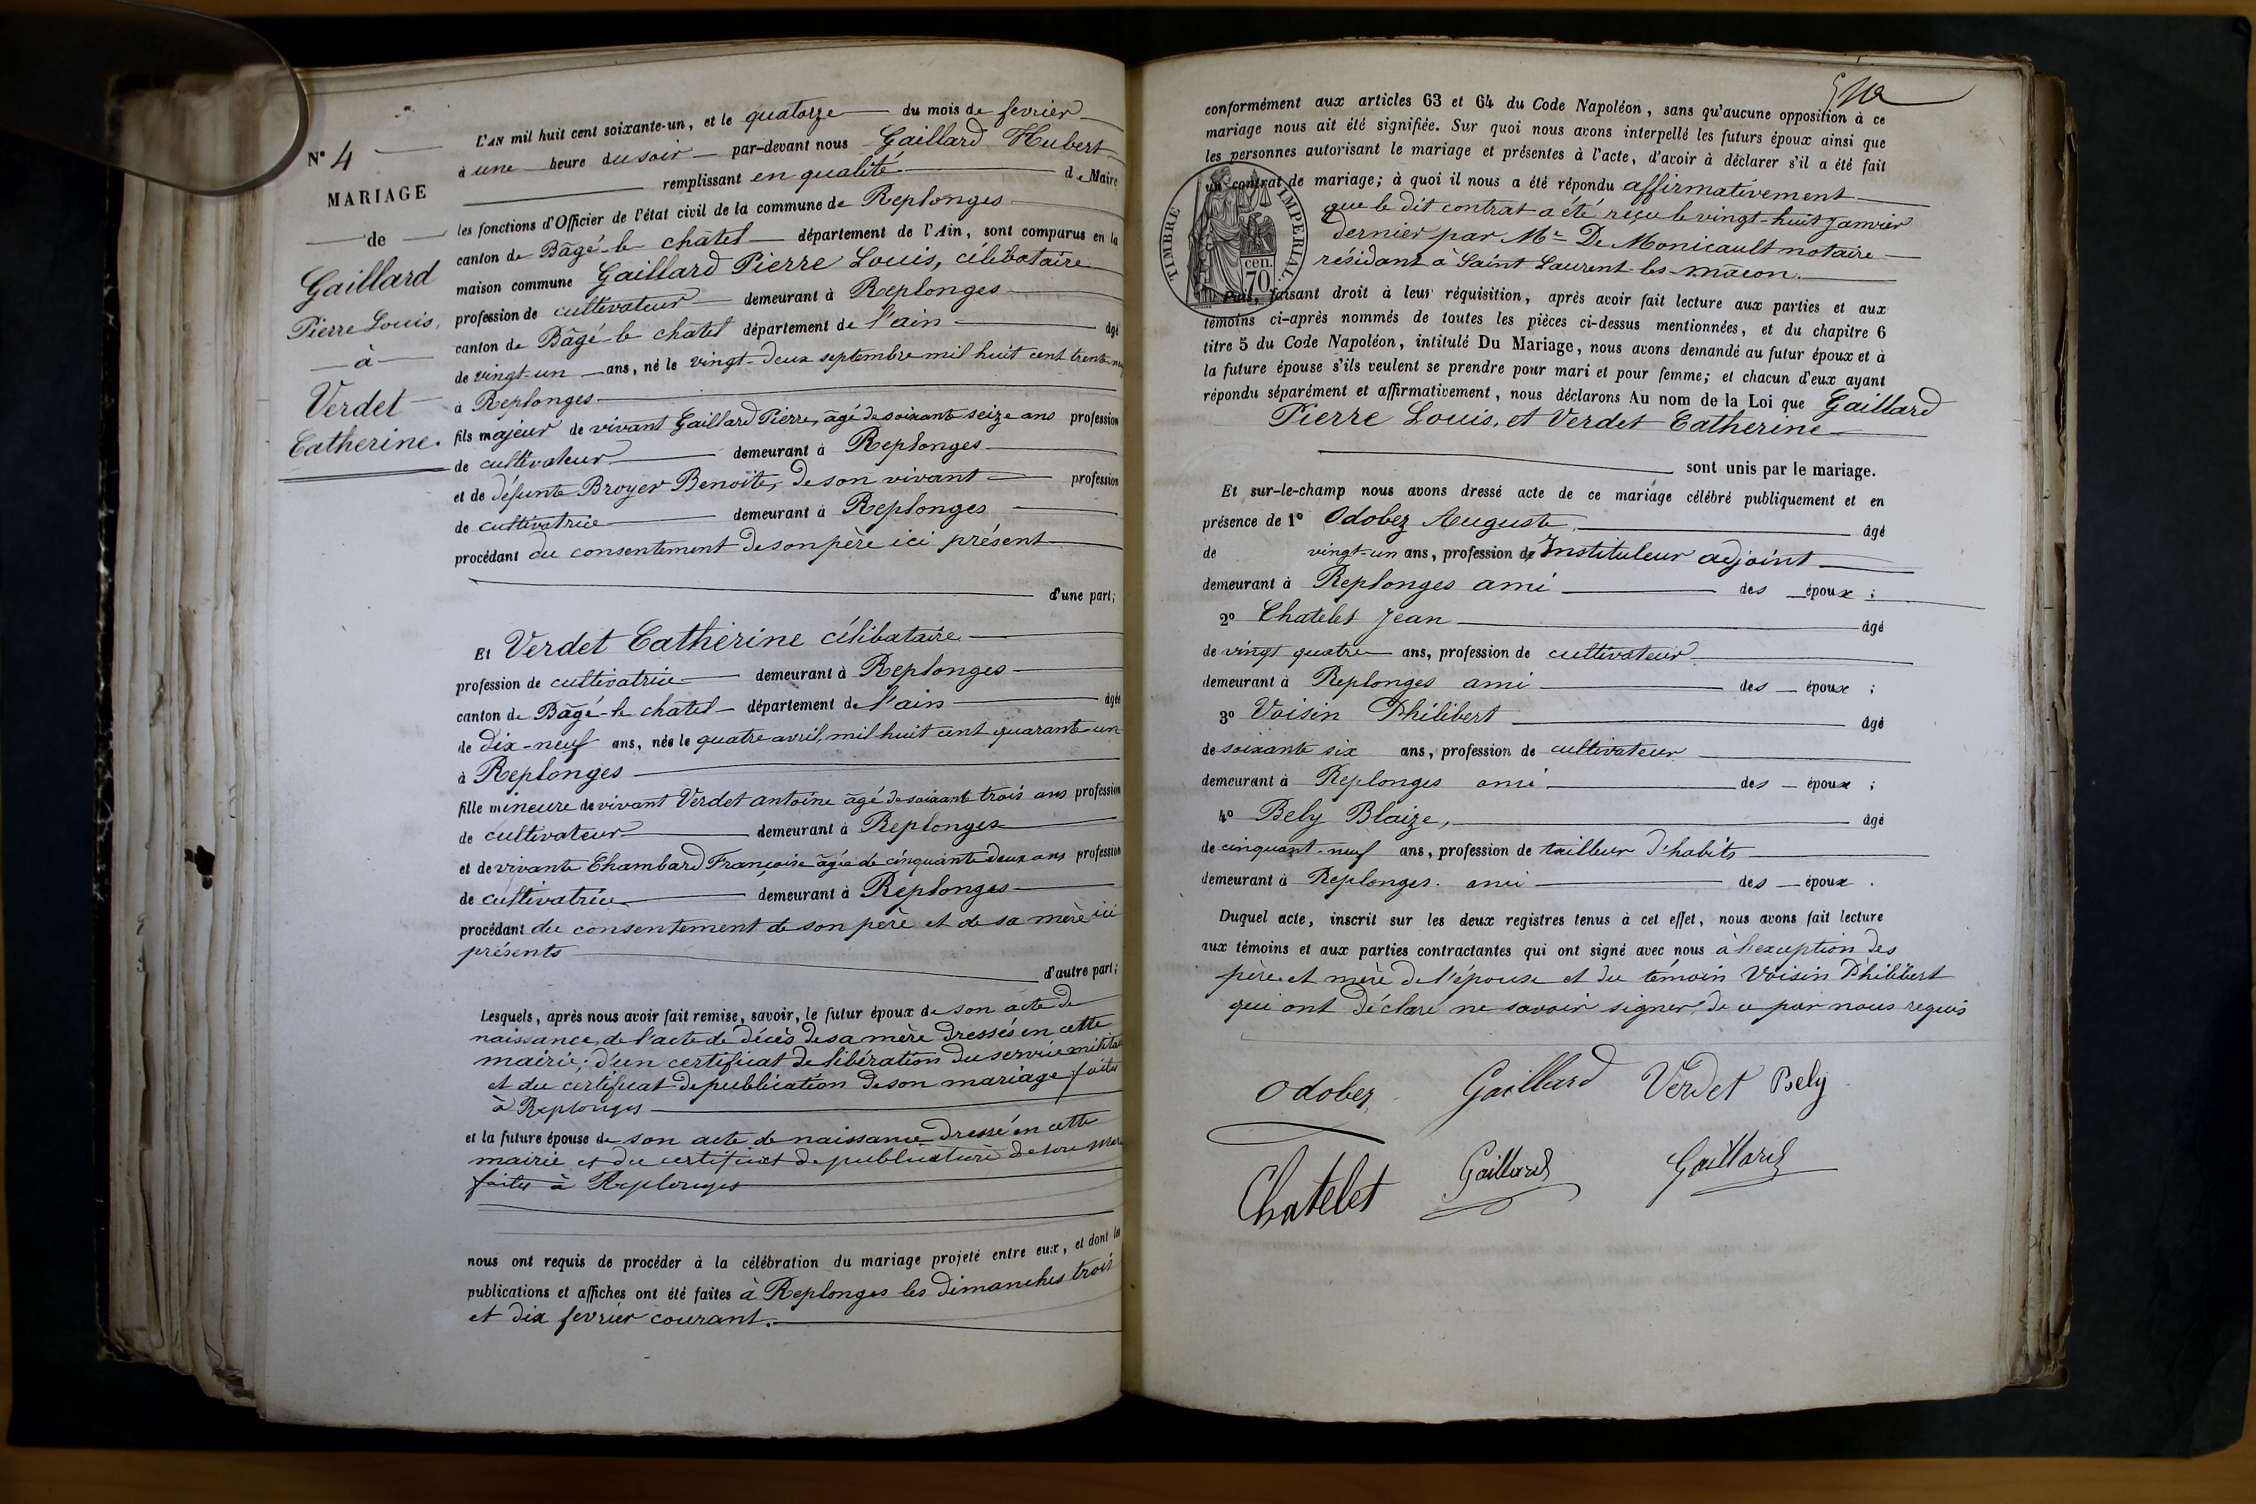 N° 4
MARIAGE
de
Gaillard
Pierre Louis,
à
Verdet
Catherine.
L'AN mil huit cent soixante-un, et le quatorze du mois de fevrier
à une heure du soir par-devant nous Gaillard Hubert
remplissant en qualité de Maire
les fonctions d'Officier de l'état civil de la commune de Replonges
canton de Bâgé-le chatel département de l'Ain, sont comparus en la
maison commune Gaillard Pierre Louis, célibataire
profession de cultivateur demeurant à Replonges
canton de Bâgé-le chatel département de l'ain âgé
de vingt-un ans, né le vingt-deux septembre mil huit cent trente-neuf
à Replonges
fils majeur de vivant Gaillard Pierre, âgé de soixante seize ans profession
de cultivateur demeurant à Replonges
et de défunte Broyer Benoite, de son vivant profession
de cultivatrice demeurant à Replonges
procédant du consentement de son père ici présent
d'une part;
Et Verdet Catherine célibataire
profession de cultivatrice demeurant à Replonges
canton de Bâgé-le chatel département de l'ain âgée
de dix-neuf ans, née le quatre avril, mil huit cent quarante-un
à Replonges
fille mineure de vivant Verdet antoine âgé de soixante trois ans profession
de cultivateur demeurant à Replonges
et de vivante Chambard Françoise âgée de cinquante deux ans profession
de cultivatrice demeurant à Replonges
procédant du consentement de son père et de sa mère ici
présents
d'autre part;
Lesquels, après nous avoir fait remise, savoir, le futur époux de son acte de
naissance, de l'acte de décès de sa mère dressés en cette
mairie; d'un certificat de libération du service
et du certificat de publication de son mariage faites
à Replonges
et la future épouse de son acte de naissance dressé en cette
mairie et du certificat de publication de son
faites à Replonges
nous ont requis de procéder à la célébration du mariage projeté entre eux, et dont les
publications et affiches ont été faites à Replonges les dimanches trois
et dix fevrier courant.
conformément aux articles 63 et 64 du Code Napoléon, sans qu'aucune opposition à ce
mariage nous ait été signifiée. Sur quoi nous avons interpellé les futurs époux ainsi que
les personnes autorisant le mariage et présentes à l'acte, d'avoir à déclarer s'il a été fait
un contrat de mariage; à quoi il nous a été répondu affirmativement
que le dit contrat a été reçu le vingt-huit janvier
dernier par Me De Monicault notaire
résidant à Saint Laurent-les-macon.
TIMBRE IMPERIAL
70 cen.
Puis, faisant droit à leur réquisition, après avoir fait lecture aux parties et aux
témoins ci-après nommés de toutes les pièces ci-dessus mentionnées, et du chapitre 6
titre 5 du Code Napoléon, intitulé Du Mariage, nous avons demandé au futur époux et à
la future épouse s'ils veulent se prendre pour mari et pour femme; et chacun d'eux ayant
répondu séparément et affirmativement, nous déclarons Au nom de la Loi que Gaillard
Pierre Louis, et Verdet Catherine
sont unis par le mariage.
Et sur-le-champ nous avons dressé acte de ce mariage célébré publiquement et en
présence de 1° Odobez Auguste, âgé
de vingt-un ans, profession de Instituteur adjoint
demeurant à Replonges ami des époux ;
2° Chatelet Jean âgé
de vingt quatre ans, profession de cultivateur
demeurant à Replonges ami des époux ;
3° Voisin Philibert âgé
de soixante six ans, profession de cultivateur
demeurant à Replonges ami des époux ;
4° Bely Blaize, âgé
de cinquant-neuf ans, profession de tailleur d'habits
demeurant à Replonges. ami des époux .
Duquel acte, inscrit sur les deux registres tenus à cet effet, nous avons fait lecture
aux témoins et aux parties contractantes qui ont signé avec nous à l'exception des
père et mère de l'épouse et du témoin Voisin Philibert
qui ont déclaré ne savoir signer de ce par nous requis
Odobez Gaillard Verdet Bely
Chatelet Gaillard Gaillard